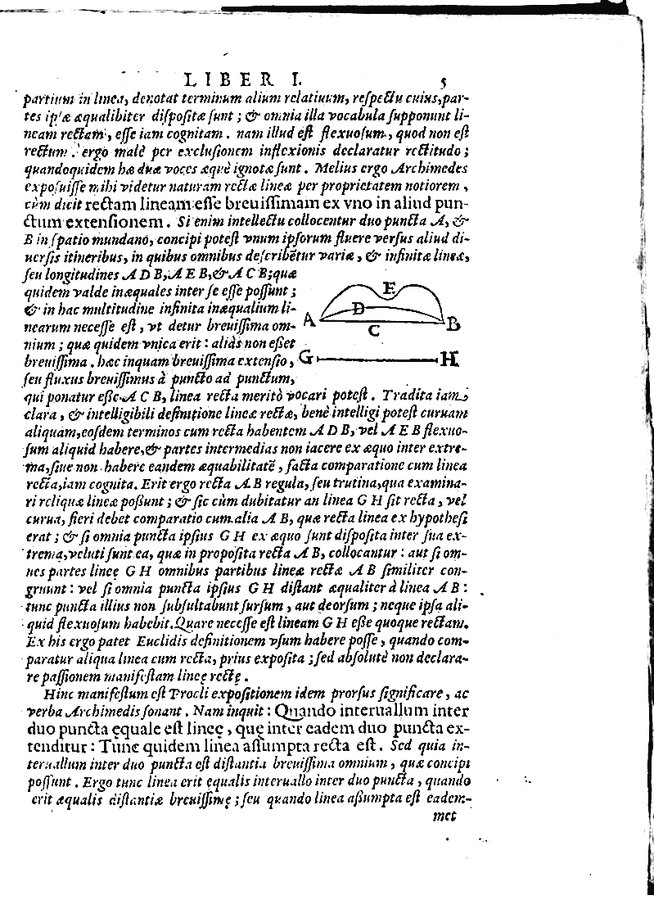 LIBER I. 5
partium in linea, denotat terminum alium relatiuum, respectu cuius, par-
tes ipsæ æqualibiter dispositæ sunt; & omnia illa vocabula supponunt li-
neam rectam, esse iam cognitam. nam illud est flexuosum, quod non est
rectum. ergo malè per exclusionem inflexionis declaratur rectitudo;
quandoquidem hæ duæ voces æquè ignotæ sunt. Melius ergo Archimedes
exposuisse mihi videtur naturam rectæ lineæ per proprietatem notiorem,
cùm dicit rectam lineam esse breuissimam ex vno in aliud pun-
ctum extensionem. Si enim intellectu collocentur duo puncta A, &
B in spatio mundano, concipi potest vnum ipsorum fluere versus aliud di-
uersis itineribus, in quibus omnibus describẽtur variæ, & infinitæ lineæ,
seu longitudines A D B, A E B, & A C B; quæ
quidem valde inæquales inter se esse possunt;
& in hac multitudine infinita inæqualium li-
nearum necesse est, vt detur breuissima om-
nium; quæ quidem vnica erit: aliàs non esset
breuissima. hæc inquam breuissima extensio,
seu fluxus breuissimus à puncto ad punctum,
E
D
A B
C
G H
qui ponatur esse A C B, linea recta meritò vocari potest. Tradita iam
clara, & intelligibili definitione lineæ rectæ, benè intelligi potest curuam
aliquam, eosdem terminos cum recta habentem A D B, vel A E B flexuo-
sum aliquid habere, & partes intermedias non iacere ex æquo inter extre-
ma, siue non habere eandem æquabilitatẽ, facta comparatione cum linea
recta, iam cognita. Erit ergo recta A B regula, seu trutina, qua examina-
ri reliquæ lineæ possunt; & sic cùm dubitatur an linea G H sit recta, vel
curua, fieri debet comparatio cum alia A B, quæ recta linea ex hypothesi
erat; & si omnia puncta ipsius G H ex æquo sunt disposita inter sua ex-
trema, veluti sunt ea, quæ in proposita recta A B, collocantur: aut si om-
nes partes lineę G H omnibus partibus lineæ rectæ A B similiter con-
gruunt: vel si omnia puncta ipsius G H distant æqualiter à linea A B:
tunc puncta illius non subsultabunt sursum, aut deorsum; neque ipsa ali-
quid flexuosum habebit. Quare necesse est lineam G H esse quoque rectam.
Ex his ergo patet Euclidis definitionem vsum habere posse, quando com-
paratur aliqua linea cum recta, prius exposita; sed absolutè non declara-
re passionem manifestam lineę rectę.
Hinc manifestum est Procli expositionem idem prorsus significare, ac
verba Archimedis sonant. Nam inquit: Quando interuallum inter
duo puncta ęquale est lineę, quę inter eadem duo puncta ex-
tenditur: Tunc quidem linea assumpta recta est. Sed quia in-
teruallum inter duo puncta est distantia breuissima omnium, quæ concipi
possunt. Ergo tunc linea erit ęqualis interuallo inter duo puncta, quando
erit æqualis distantiæ breuissimę; seu quando linea assumpta est eadem-
met